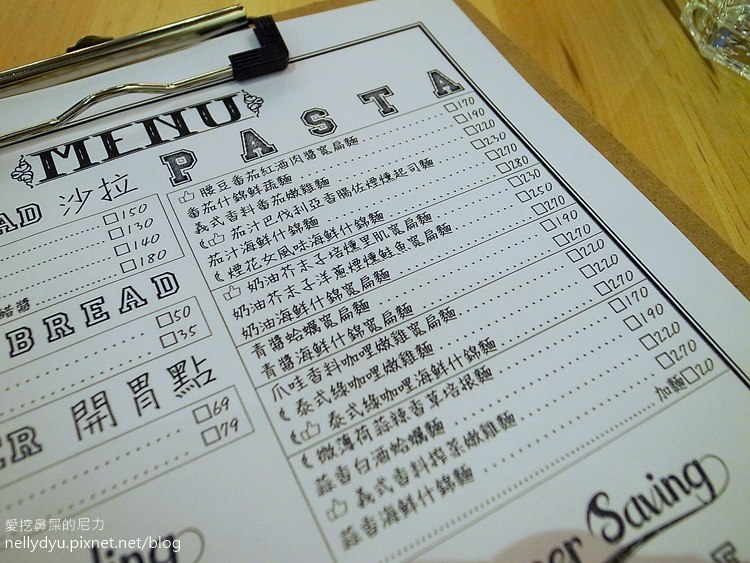 MENU
AD 沙拉
150
130
140
180
醬
BREAD
50
35
ER 開胃點
69
79
PASTA
腰豆番茄紅酒肉醬寬扁麵 170
番茄什錦鮮蔬麵 190
義式香料番茄嫩雞麵 220
茄汁巴伐利亞香腸佐煙燻起司麵 230
茄汁海鮮什錦麵 270
煙花女風味海鮮什錦麵 280
奶油芥末子培燻里肌寬扁麵 230
奶油芥末子洋蔥煙燻鮭魚寬扁麵 250
奶油海鮮什錦寬扁麵 270
青醬蛤蠣寬扁麵 190
青醬海鮮什錦寬扁麵 270
爪哇香料咖哩嫩雞寬扁麵 220
泰式綠咖哩嫩雞麵 220
泰式綠咖哩海鮮什錦麵 270
微薄荷蒜辣香草培根麵 170
蒜香白酒蛤蠣麵 190
義式香料榨菜嫩雞麵 220
蒜香海鮮什錦麵 270
加麵 20
per Saving
愛挖鼻屎的尼力
nellydyu.pixnet.net/blog